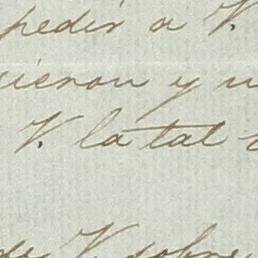 pedir a V.
uieron y u
V. la tal
de V. sobre